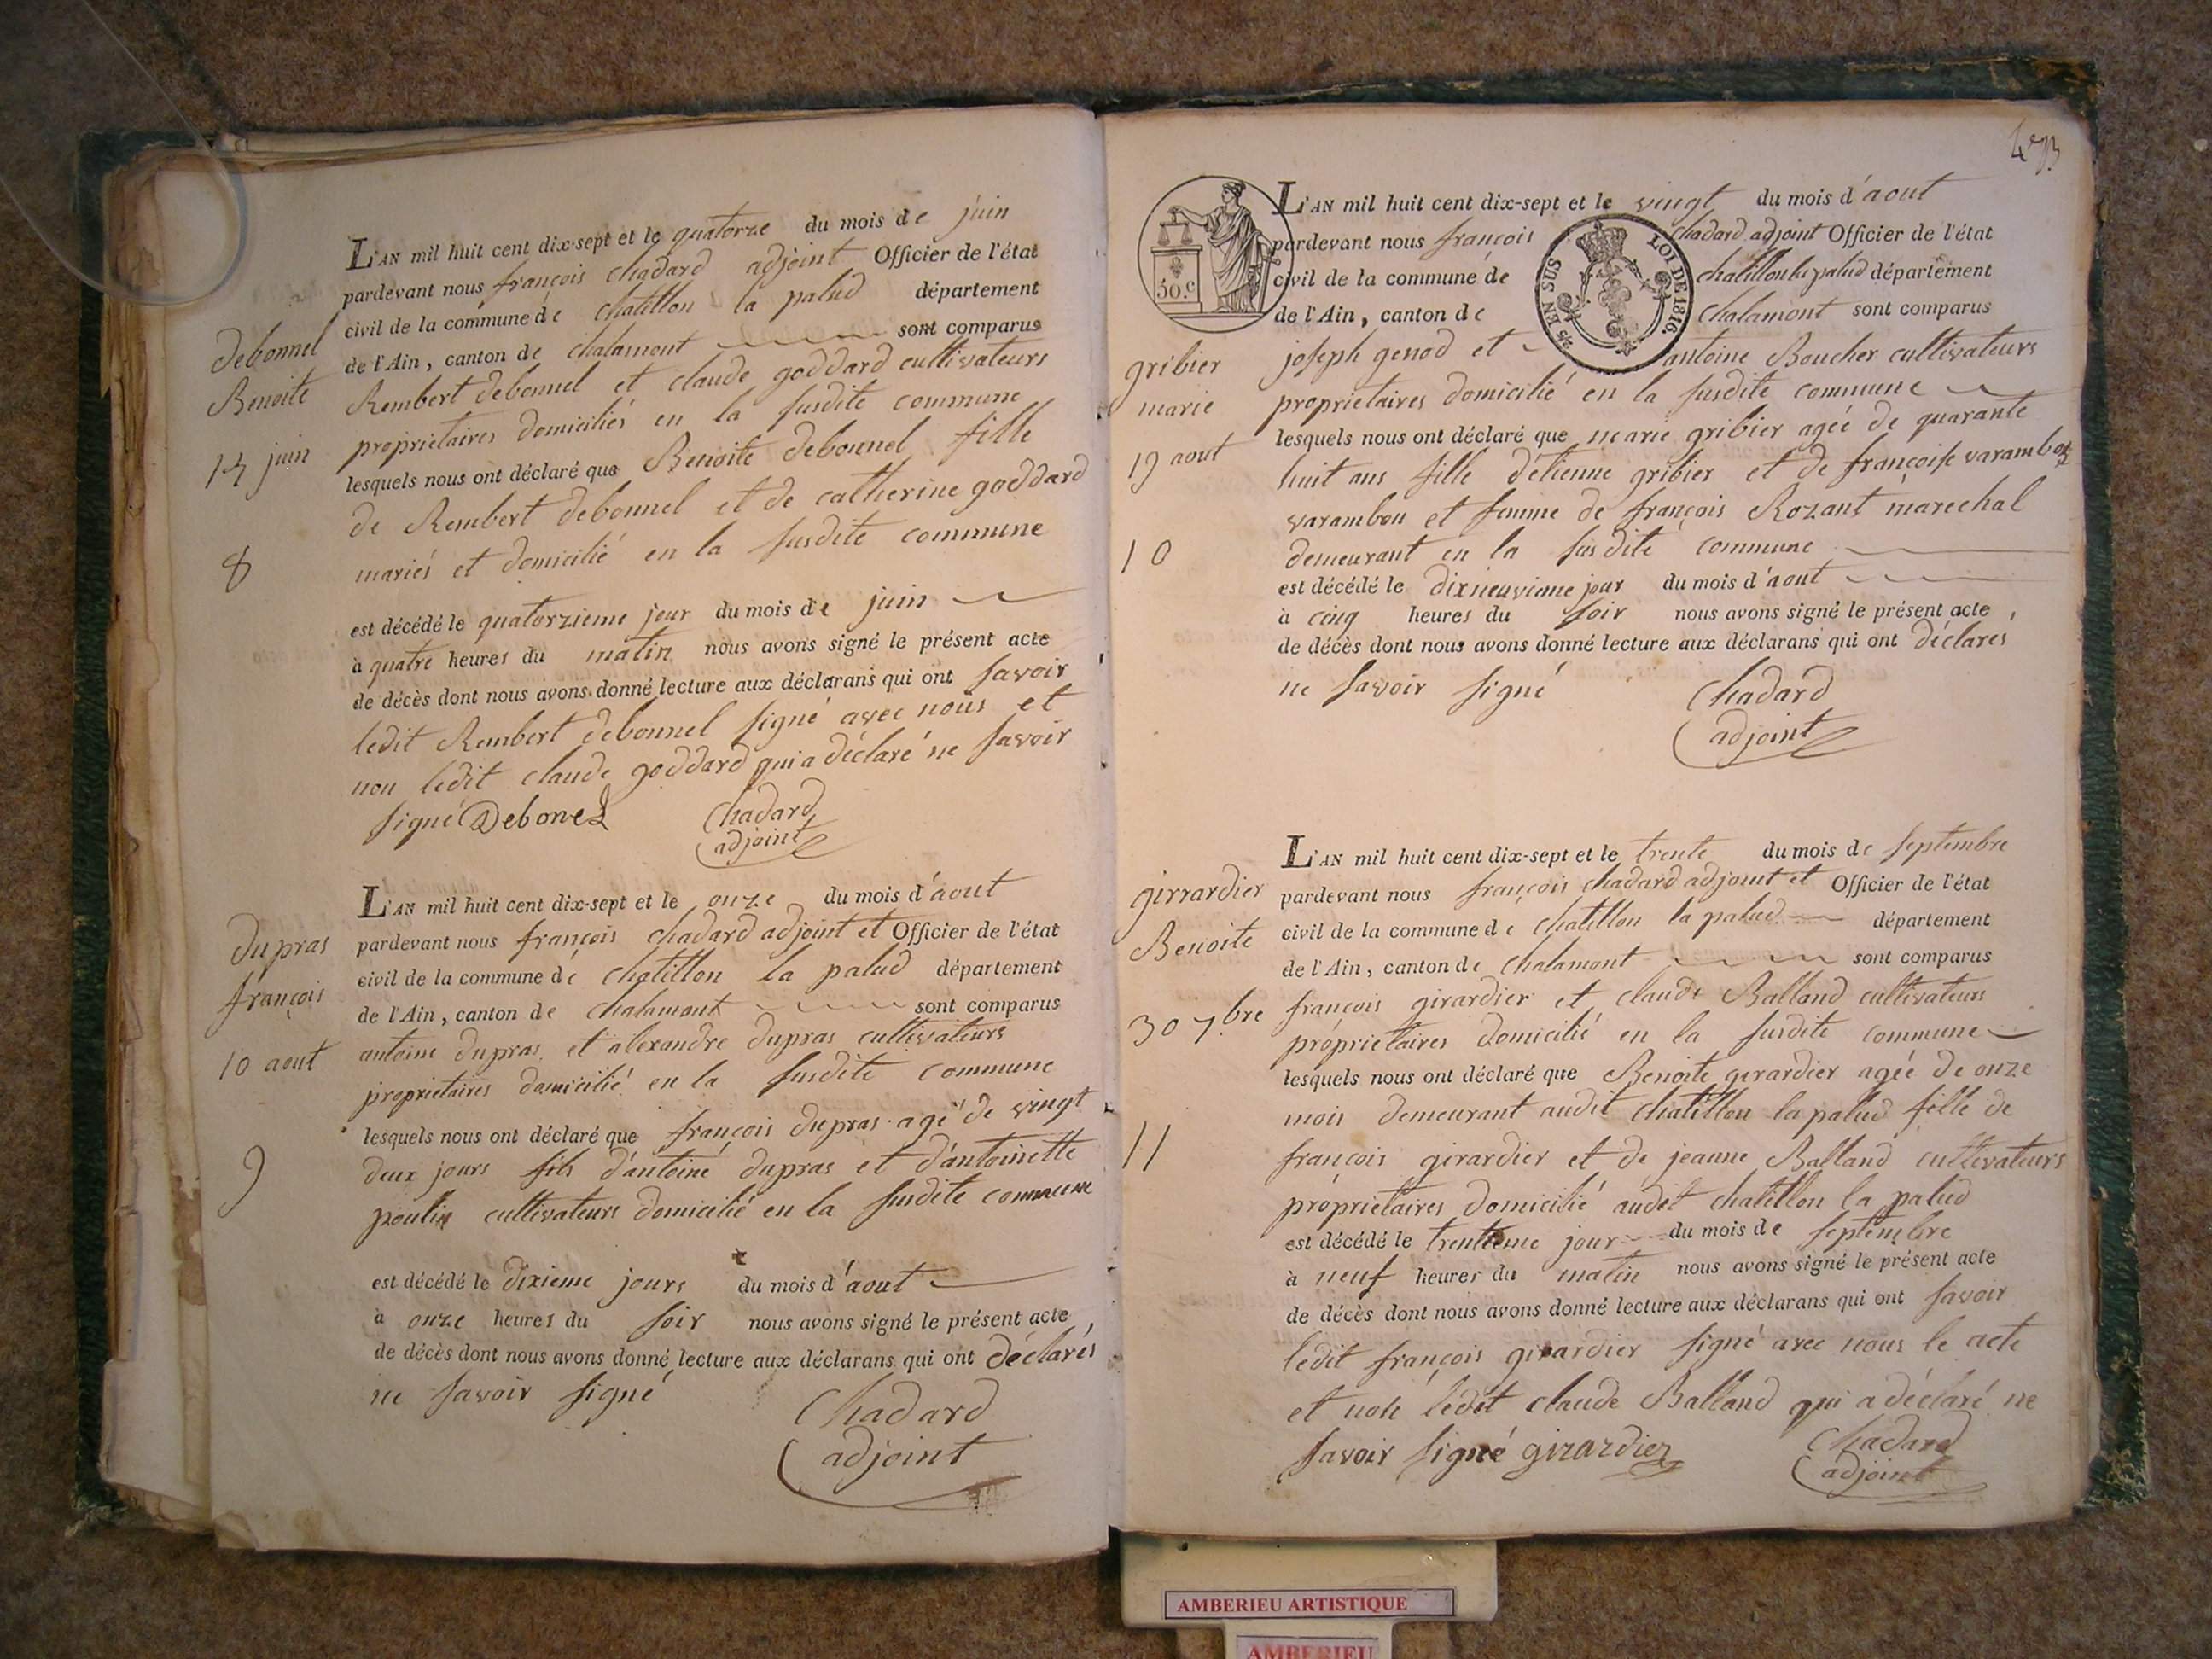 L'AN mil huit cent dix-sept et le quatorze du mois de juin
pardevant nous françois chadard adjoint Officier de l'état
civil de la commune de chatillon la palud département
de l'Ain, canton de chalamont sont comparus
Rembert debonnel et claude goddard cultivateurs
propriétaires domiciliés en la susdite commune
lesquels nous ont déclaré que Benoite debonnel fille
de Rembert debonnel et de catherine goddard
mariés et domicilié en la susdite commune
est décédé le quatorzieme jour du mois de juin
à quatre heures du matin nous avons signé le présent acte
de décès dont nous avons donné lecture aux déclarans qui ont savoir
ledit Rembert debonnel signé avec nous et
non ledit claude goddard qui a déclaré ne savoir
signé Debonel Chadard
adjoint
debonnel
Benoite
14 juin
8
L'AN mil huit cent dix-sept et le onze du mois d'aout
pardevant nous françois chadard adjoint et Officier de l'état
civil de la commune de chatillon la palud département
de l'Ain, canton de chalamont sont comparus
antoine dupras et alexandre dupras cultivateurs
propriétaires domicilié en la susdite commune
lesquels nous ont déclaré que françois dupras agé de vingt
deux jours fils d'antoine dupras et d'antoinette
poulin cultivateurs domicilié en la susdite commune
est décédé le dixieme jours du mois d'aout
à onze heures du soir nous avons signé le présent acte
de décès dont nous avons donné lecture aux déclarans qui ont déclarés
ne savoir signé
Chadard
adjoint
dupras
françois
10 aout
9
L'AN mil huit cent dix-sept et le vingt du mois d'aout
pardevant nous françois chadard adjoint Officier de l'état
civil de la commune de chatillon la palud département
de l'Ain, canton de chalamont sont comparus
joseph genod et antoine Boucher cultivateurs
propriétaires domicilié en la susdite commune
lesquels nous ont déclaré que marie gribier agée de quarante
huit ans fille d'etienne gribier et de françoise varambon
varambon et femme de françois Rozant marechal
demeurant en la susdite commune
est décédé le dixneuvieme jour du mois d'aout
à cinq heures du soir nous avons signé le présent acte
de décès dont nous avons donné lecture aux déclarans qui ont déclarés
ne savoir signé Chadard
adjoint
30.c
5/e EN SUS LOI DE 1816.
gribier
marie
19 aout
10
L'AN mil huit cent dix-sept et le trente du mois de septembre
pardevant nous françois chadard adjoint et Officier de l'état
civil de la commune de chatillon la palud département
de l'Ain, canton de chalamont sont comparus
françois girardier et claude Balland cultivateurs
propriétaires domicilié en la susdite commune
lesquels nous ont déclaré que Benoite girardier agée de onze
mois demeurant audit chatillon la palud fille de
françois girardier et de jeanne Balland cultivateurs
propriétaires domicilié audit chatillon la palud
est décédé le trentieme jour du mois de septembre
à neuf heures du matin nous avons signé le présent acte
de décès dont nous avons donné lecture aux déclarans qui ont savoir
ledit françois girardier signé avec nous le acte
et non ledit claude Balland qui a déclaré ne
savoir signé girardier Chadard
adjoint
girrardier
Benoite
30 7.bre
11
AMBERIEU ARTISTIQUE
AMBERIEU